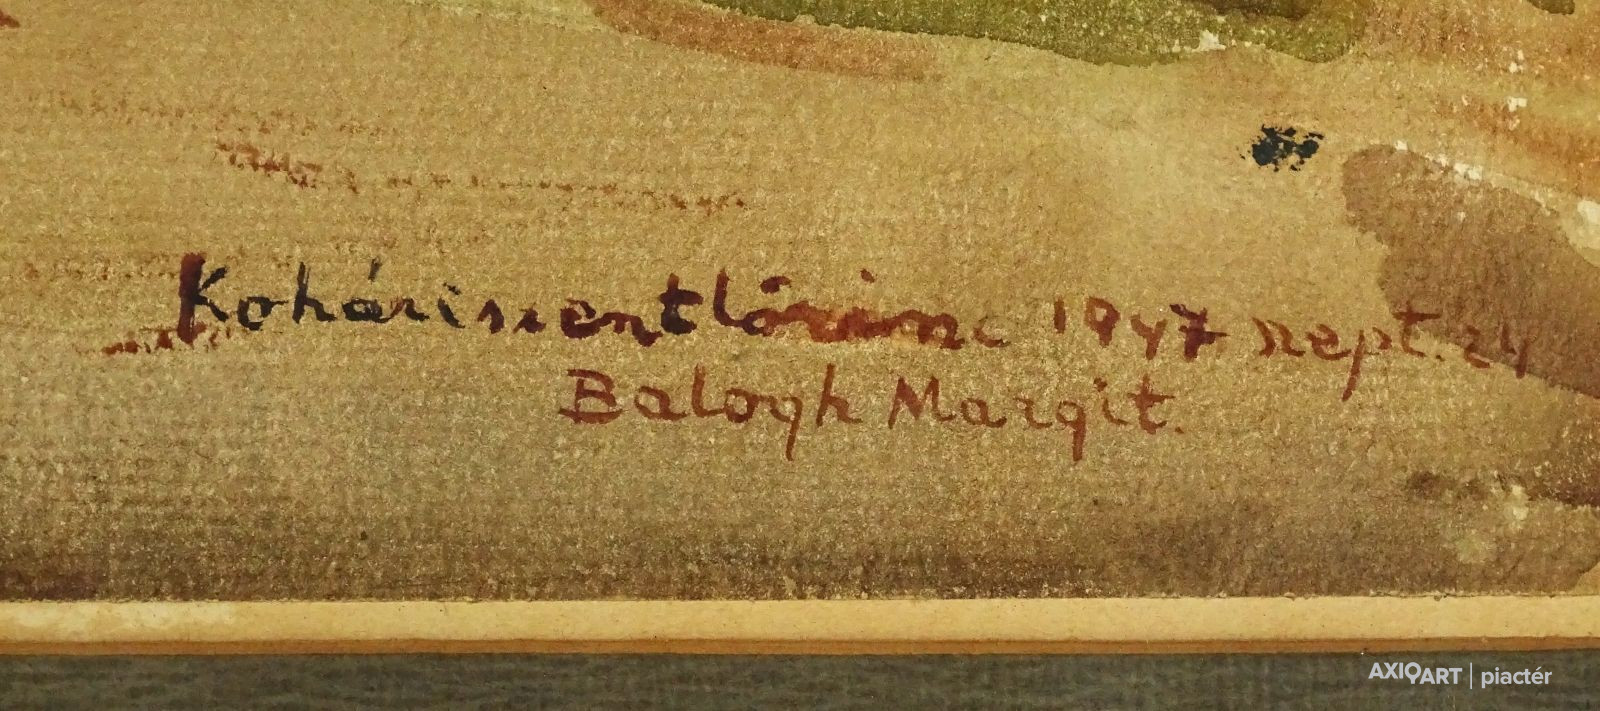 Koháriszentlőrinc 1947 szept. 24
Balogh Margit.
AXIOART | piactér